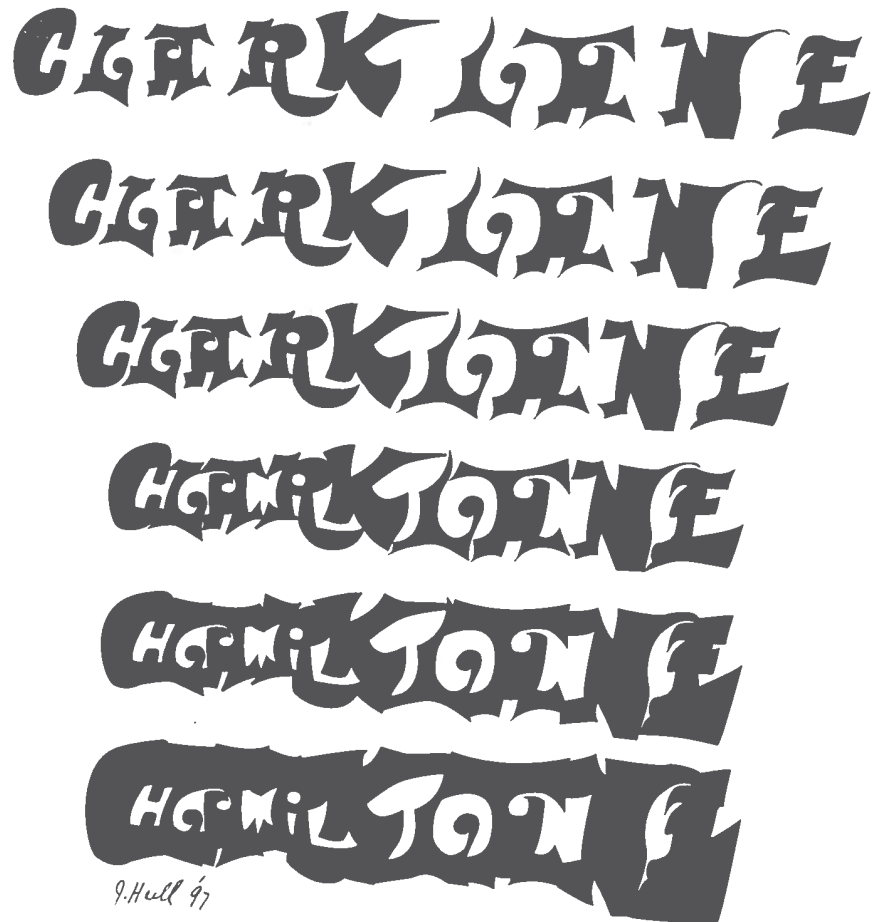 CLARK LANE
CLARK LANE
CLARK LANE
CLARK LANE
HAMILTON
HAMILTON
J. Hull '97